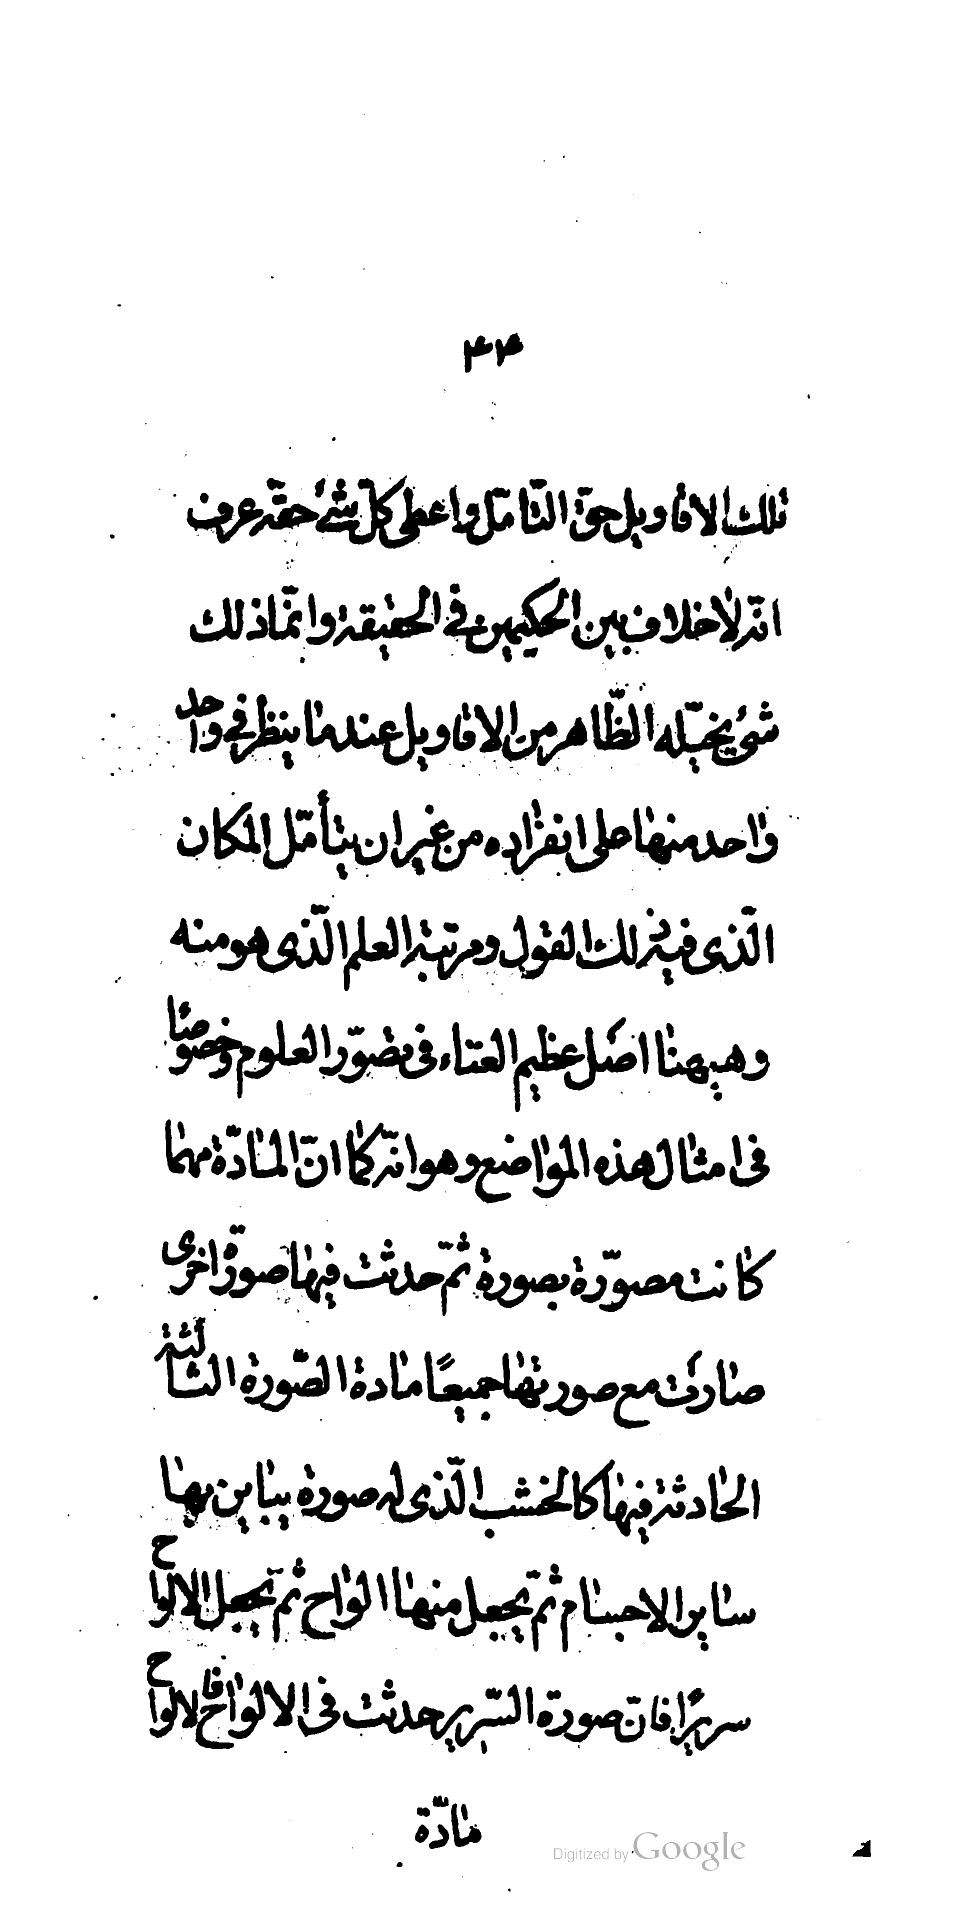 ۴۴
تلك الاقاويل حقّ التّامّل واعطى كلّ شئ حقّه عرف
انّه لاخلاف بين الحكيمين فى الحقيقة وانّما ذلك
شئ يخيّله الظّاهر من الاقاويل عند ما ينظر فى واحد
واحد منها على انفراده من غير ان يتأمّل المكان
الّذى فيه ذلك القول ومرتبة العلم الّذى هو منه
وهيهنا اصل عظيم العناء فى تصوّر العلوم وخصوصًا
فى امثال هذه المواضع وهو انّه كما انّ المادّة مهما
كانت مصوّرة بصورة ثمّ حدثت فيها صورة اخرى
صارت مع صورتها جميعًا مادة الصّورة الثالثة
الحادثة فيها كالخشب الّذى له صورة يباين بها
ساير الاجسام ثمّ يجعل منها الواح ثمّ يجعل الالواح
سريرًا فانّ صورة السّرير حدثت فى الالواح فالالواح
مادّة
Digitized by Google